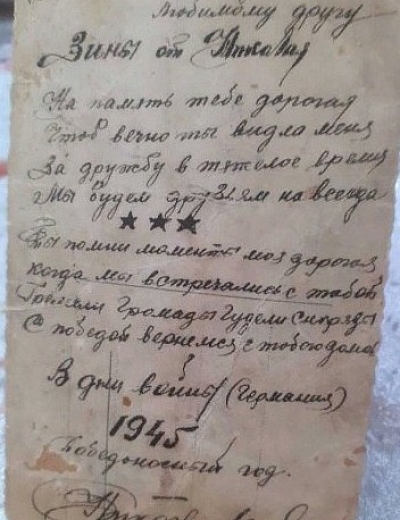 Любимому другу
Зины от
На память тебе дорогая
Чтоб вечно ты видла меня
За дружбу в тяжелое время
Мы будем друзям на всегда
★ ★ ★
Ты помни моменты моя дорогая
когда мы встречались с тобой
Гремели громады гудели снаряды
С победой вернемся с тобою домой
В дни войны (Германия)
1945
Победоносный год.